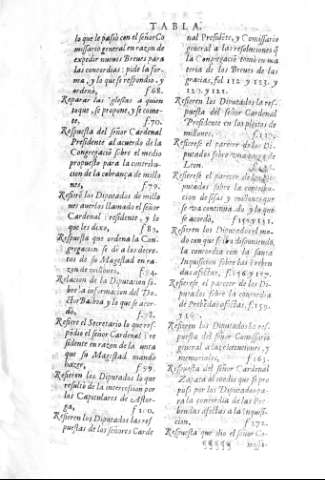 TABLA.
lo que le passò con el señor Co
missario general en razon de
expedir nuevos Breues para
las concordias: pide la for-
ma, y lo que se respondio, y
ordenò, f.68.
Reparar las Iglesias a quien
toque, se propone, y se come-
te, f.70.
Respuesta del señor Cardenal
Presidente al acuerdo de la
Congregaciõ sobre el medio
propuesto para la contribu-
cion de la cobrança de millo-
nes, f.79.
Refierẽ los Diputados de millo
nes auerles llamado el señor
Cardenal Presidente, y lo
que les dixo, f.83.
Respuesta que ordena la Con-
gregacion se dè a los decre-
tos de su Magestad en ra-
zon de millones, f.94.
Relacion de la Diputacion so-
bre la informacion del Do-
ctor Balboa y lo que se acor-
dò,
Refiere el Secretario lo que res-
põdio el señor Cardenal Pre
sidente en razon de la
que su Magestad mandò
hazer, f.99.
Refieren los Diputados lo que
resultò de la intercession por
los Capitulares de Astor-
ga, f.110.
Refieren los Diputados las res
puestas de los señores Carde
nal Presidẽte, y Comissario
general a las resoluciones q̃
la Congregaciõ tomò en ma
teria de los Breues de las
gracias, fol. 112. y 113. y
120. y 121.
Refieren los Diputados la res-
puesta del señor Cardenal
Presidente en los pleitos de
millones,
Refierese el parecer de los Di-
putados sobre
Leon.
Refierese el parecer de los Di-
putados sobre la contribu-
cion de sisas y millones que
se va continuando y lo que
se acordò, f.150. y 151.
Refieren los Diputados el mo-
do con que se va disponiendo
la concordia con la santa
Inquisicion sobre las Preben
das afectas, f.156. y 157.
Refierese el parecer de los Di-
putados sobre la concordia
de Prebẽdas afectas, f.159.
y
Refieren los Diputados la res-
puesta del señor Comissario
general a las locuciones, y
memoriales, f.163.
Respuesta del señor Cardenal
Zapata al medio que se pro
puso por los Diputados para
la concordia de las Pre-
bendas afectas a la Inquisi-
cion, f.172.
Respuesta que dio el señor Co-